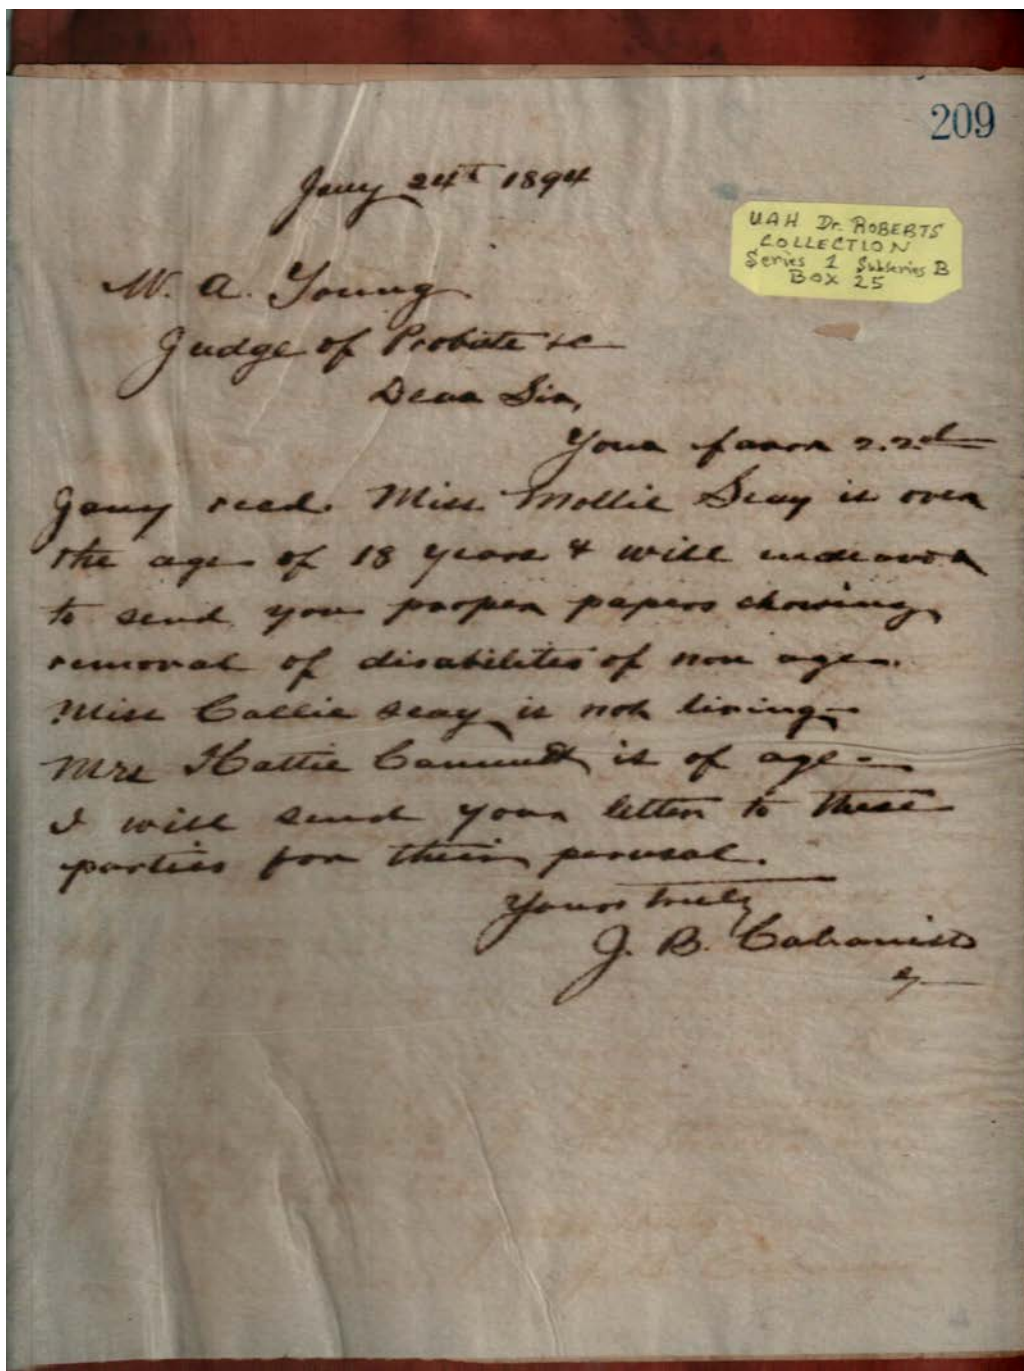 209
Jany 24th 1894
UAH Dr. ROBERTS
COLLECTION
Series 1 Subseries B
BOX 25
W. A. Young
Judge of Probate &c
Dear Sir,
Your favor 22d
Jany recd. Miss Mollie Seay is over
the age of 18 years & will endeavor
to send you proper papers showing
removal of disabilites of non age.
Miss Callie Seay is not living
Mrs Hattie is of age
I will send your letter to these
parties for their perusal.
Yours truly
J. B. Cabaniss